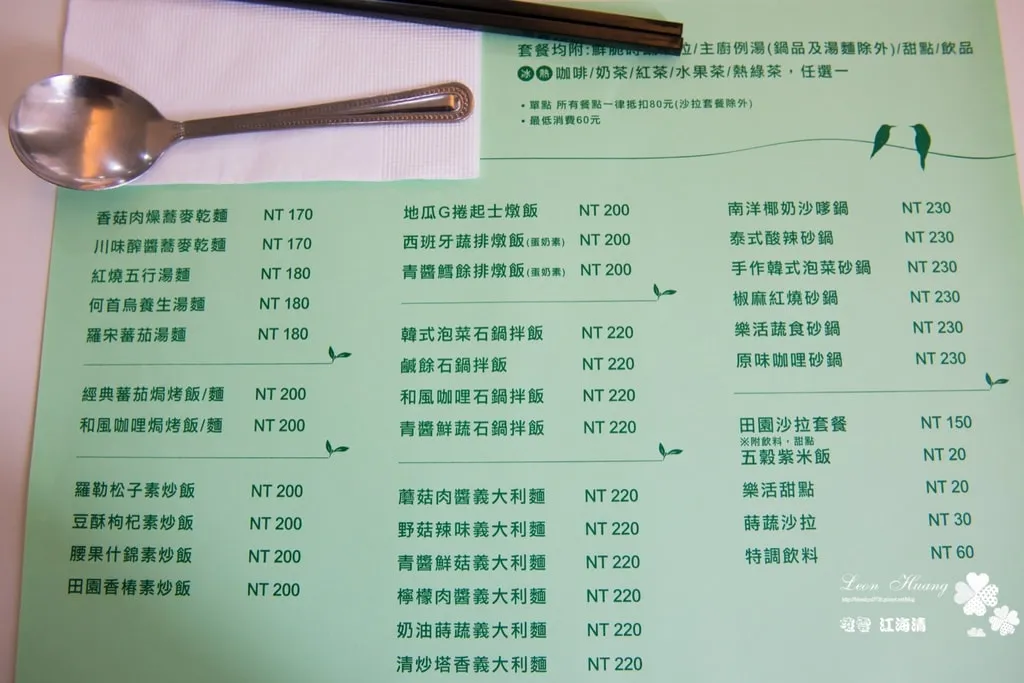 套餐均附:鮮脆時 拉/主廚例湯(鍋品及湯麵除外)/甜點/飲品
冰 熱 咖啡/奶茶/紅茶/水果茶/熱綠茶，任選一
• 單點 所有餐點一律抵扣80元(沙拉套餐除外)
• 最低消費60元
香菇肉燥蕎麥乾麵 NT 170
川味醡醬蕎麥乾麵 NT 170
紅燒五行湯麵 NT 180
何首烏養生湯麵 NT 180
羅宋蕃茄湯麵 NT 180
經典蕃茄焗烤飯/麵 NT 200
和風咖哩焗烤飯/麵 NT 200
羅勒松子素炒飯 NT 200
豆酥枸杞素炒飯 NT 200
腰果什錦素炒飯 NT 200
田園香椿素炒飯 NT 200
地瓜G捲起士燉飯 NT 200
西班牙蔬排燉飯(蛋奶素) NT 200
青醬鱈餘排燉飯(蛋奶素) NT 200
韓式泡菜石鍋拌飯 NT 220
鹹餘石鍋拌飯 NT 220
和風咖哩石鍋拌飯 NT 220
青醬鮮蔬石鍋拌飯 NT 220
蘑菇肉醬義大利麵 NT 220
野菇辣味義大利麵 NT 220
青醬鮮菇義大利麵 NT 220
檸檬肉醬義大利麵 NT 220
奶油蒔蔬義大利麵 NT 220
清炒塔香義大利麵 NT 220
南洋椰奶沙嗲鍋 NT 230
泰式酸辣砂鍋 NT 230
手作韓式泡菜砂鍋 NT 230
椒麻紅燒砂鍋 NT 230
樂活蔬食砂鍋 NT 230
原味咖哩砂鍋 NT 230
田園沙拉套餐 NT 150
※附飲料，甜點
五穀紫米飯 NT 20
樂活甜點 NT 20
蒔蔬沙拉 NT 30
特調飲料 NT 60
Leon Huang
江海清